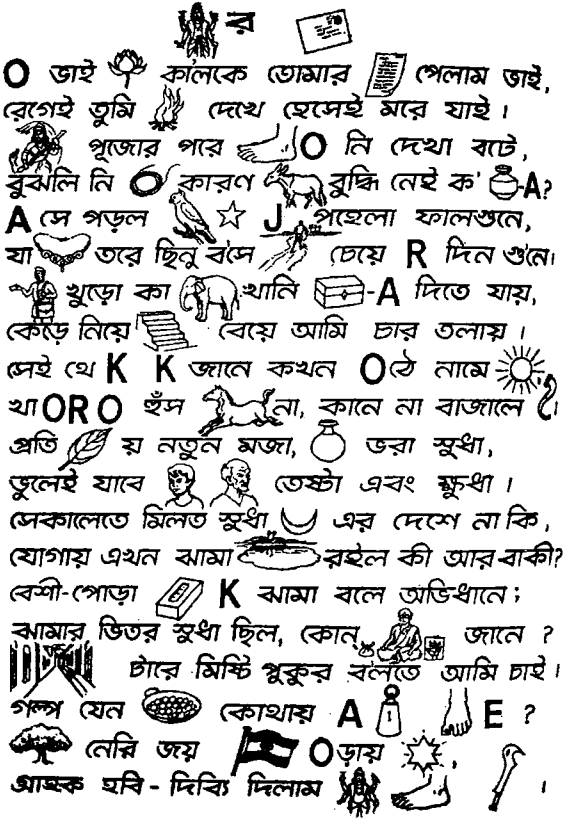 র
O ভাই কালকে তোমার পেলাম ভাই,
রেগেই তুমি দেখে হেসেই মরে যাই।
পূজোর পরে O নি দেখা বটে,
বুঝলি নি কারণ বুদ্ধি নেই ক' -A?
A সে পড়ল J পহেলা ফালগুনে,
যা তরে ছিনু ব'সে চেয়ে R দিন গুনে।
খুড়ো কা খানি -A দিতে যায়,
কেড়ে নিয়ে বেয়ে আমি চার তলায়।
সেই থে K K জানে কখন O ঠে নামে
খা ORO হুঁস না, কানে না বাজালে।
প্রতি য় নতুন মজা, ভরা সুধা,
ভুলেই যাবে তেষ্টা এবং ক্ষুধা।
সেকালেতে মিলত সুধা এর দেশে না কি,
যোগায় এখন ঝামা রইল কী আর বাকী?
বেশী-পোড়া K ঝামা বলে অভিধানে;
ঝামার ভিতর সুধা ছিল, কোন্ জানে?
টারে মিষ্টি পুকুর ব'লতে আমি চাই।
গল্প যেন কোথায় A E ?
নেরি জয় O ড়ায় ,
গ্রাহক হবি - দিব্যি দিলাম ।